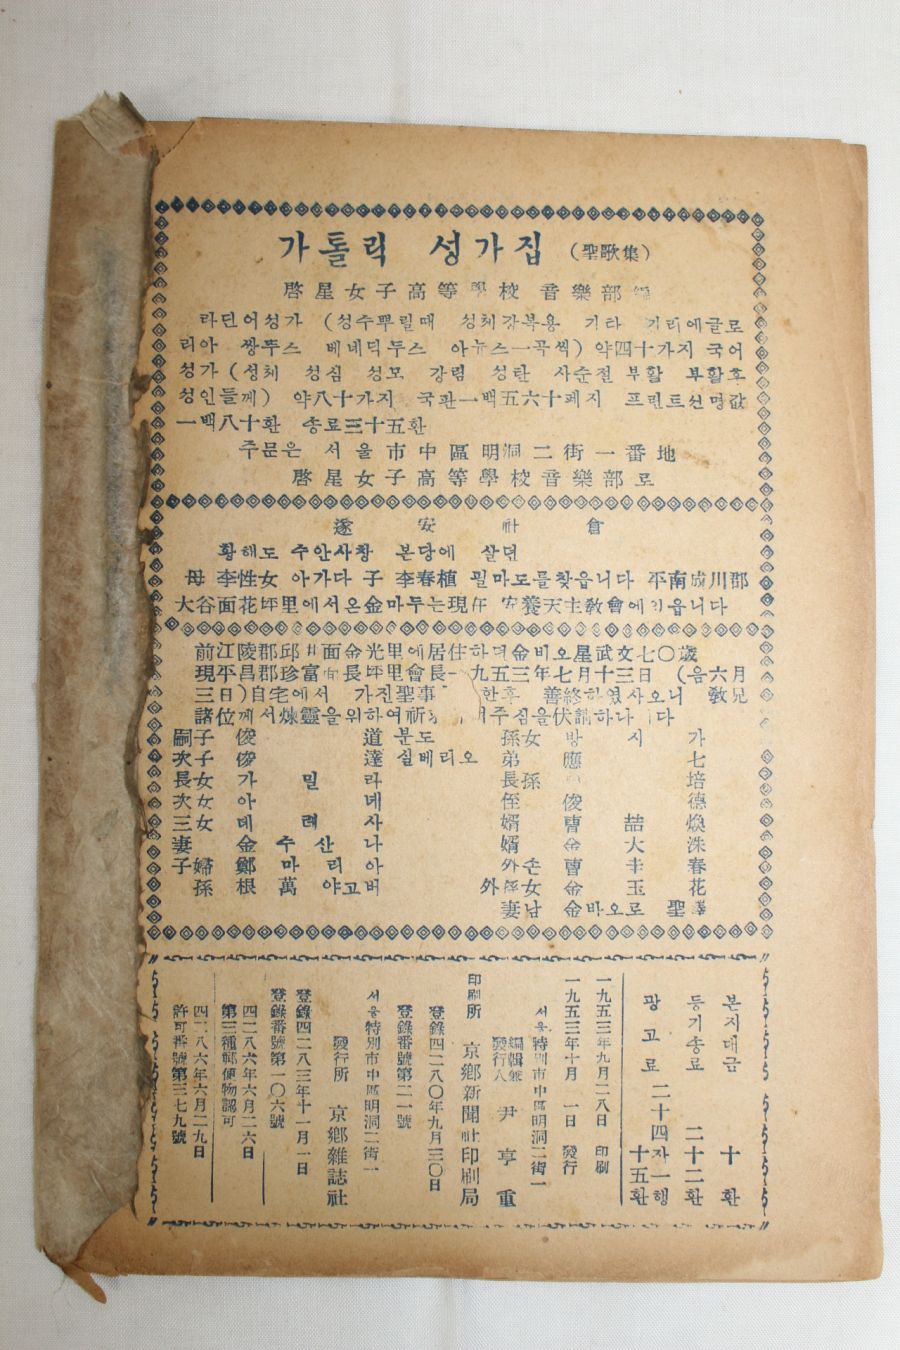 가톨릭 성가집 (聖歌集)
啓星女子高等學校 音樂部 編
라딘어성가 (성수뿌릴때 성체강복용 기타 기리에글로
리아 쌍뚜스 베네딕두스 아뉴스一곡씩) 약四十가지 국어
성가 (성체 성심 성모 강림 성탄 사순절 부활 부활후
성인들께) 약八十가지 국판一백五六十페지 프린트선명값
一백八十환 송료三十五환
주문은 서울市中區明洞二街一番地
啓星女子高等學校音樂部로
遂安社倉
황해도 수안사창 본당에 살던
母 李性女 아가다 子 李春植 필마도를찾읍니다 平南成川郡
大谷面花坪里에서온金마두는現在 安養天主敎會에 읍니다
前江陵郡邱 面金光里에居住하던金비오星武文七〇歲
現平昌郡珍富面長坪里會長一九五三年七月十三日 (음六月
三日)自宅에서 가진聖事 한후 善終하였사오니 敎兄
諸位께서煉靈을위하여祈 주심을伏請하나 다
嗣子 俊道 분도 孫女 방시가
次子 俊達 실베리오 弟 應七
長女 가밀라 長孫 培
次女 아네 侄 俊德
三女 데레사 婿 曺喆煥
妻 金수산나 婿 金大洙
子婦 鄭마리아 外손 曺圭春
孫 根萬 야고버 外孫女 金玉花
妻남 金바오로 聖
본지대금 十환
등기송료 二十二환
광고료 二十四자一행
十五환
一九五三年九月二八日 印刷
一九五三年十月 一日 發行
서울特別市中區明洞二街一
編輯兼
發行人 尹亨重
印刷所 京鄕新聞社印刷局
登錄四二八〇年九月三〇日
登錄番號第二一號
서울特別市中區明洞二街一
發行所 京鄕雜誌社
登錄四二八三年十一月一日
登錄番號第一〇六號
四二八六年六月二六日
第三種郵便物認可
四二八六年六月二九日
許可番號第三七九號